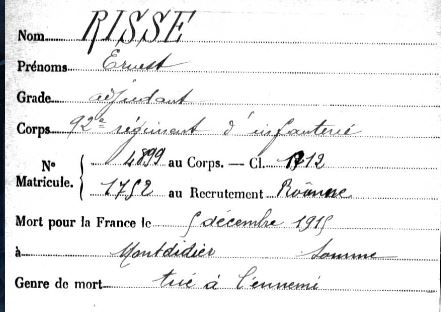 Nom RISSE
Prénoms Ernest
Grade adjudant
Corps 92e régiment d'infanterie
No Matricule. 4899 au Corps. — Cl. 1912
1752 au Recrutement Roanne
Mort pour la France le 5 décembre 1915
à Montdidier Somme
Genre de mort tué à l'ennemi